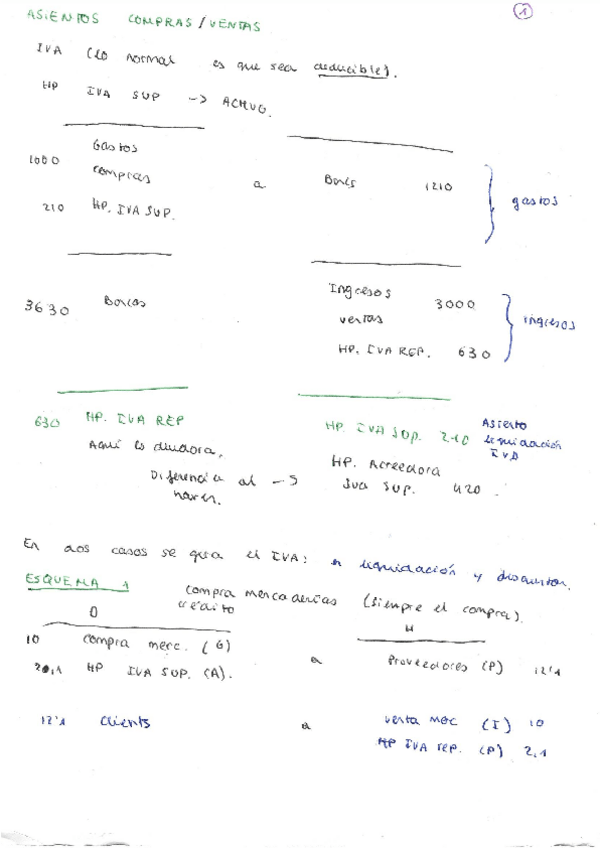 1
ASIENTOS COMPRAS/VENTAS
IVA (lo normal es que sea deducible).
HP IVA SUP -> ACTIVO.
Gastos
1000 compras a Bancs 1210 gastos
210 HP. IVA SUP.
3630 Bancos Ingresos 3000
ventas ingresos
HP. IVA REP. 630
630 HP. IVA REP HP. IVA SOP. 210 Asiento liquidación IVA
Aquí es deudora. HP. Acreedora
Diferencia al -> IVA SUP. 420.
hacer.
En dos casos se quita el IVA: en liquidación y
ESQUEMA 1 Compra mercaderías (siempre el compra).
crédito
D H
10 compra merc. (G) a Proveedores (P) 12'1
2,1 HP IVA SUP. (A).
12'1 Clients a Venta merc (I) 10
HP IVA rep. (P) 2,1